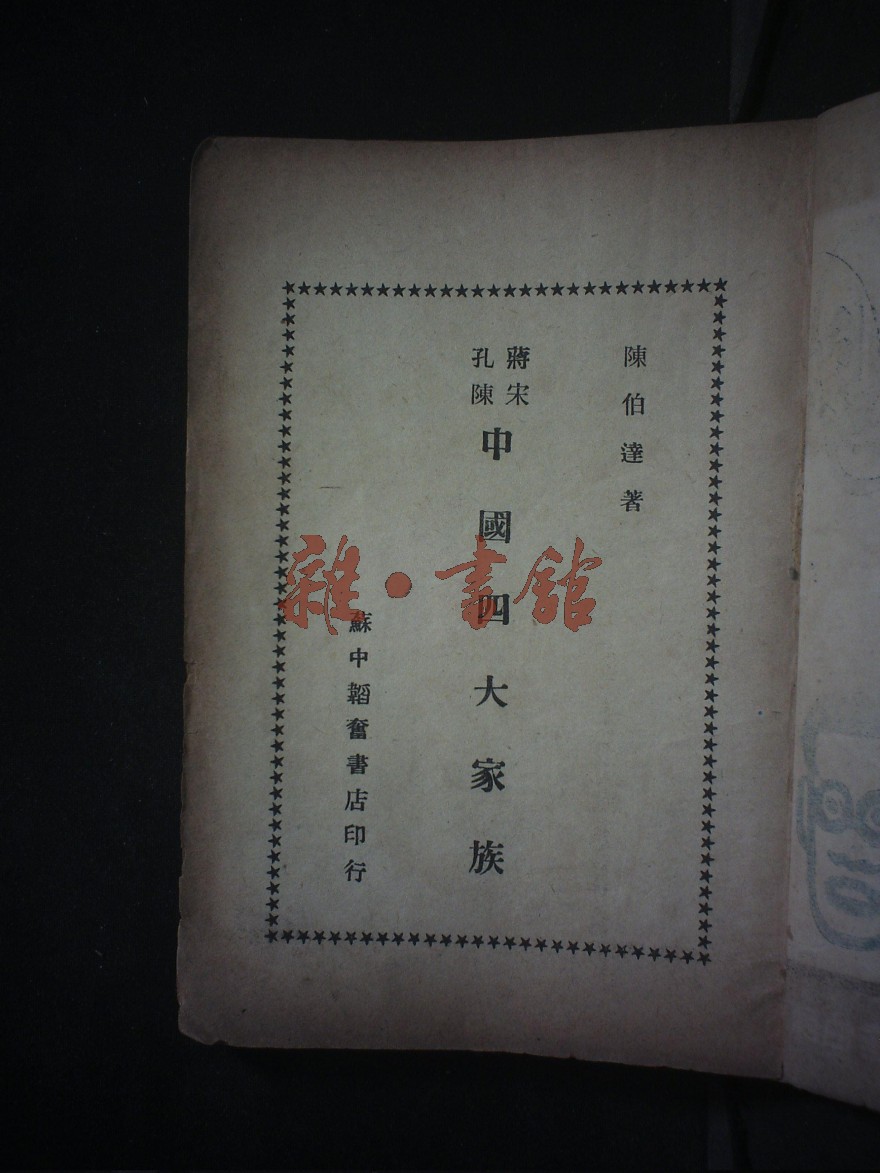 陳伯達著
蔣宋
孔陳
中國四大家族
蘇中韜奮書店印行
雜·書館